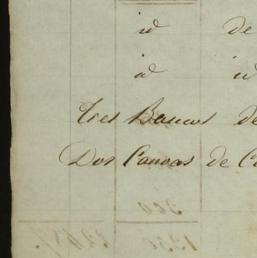 id de
id id
Tres Bancos de
Dos Canoas de C